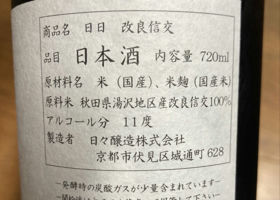 商品名 日日 改良信交
品目 日本酒 内容量 720ml
原材料名 米(国産)、米麹(国産米)
原料米 秋田県湯沢地区産改良信交100%
アルコール分 11度
製造者 日々醸造株式会社
京都市伏見区城通町628
ー発酵時の炭酸ガスが少量含まれていますー